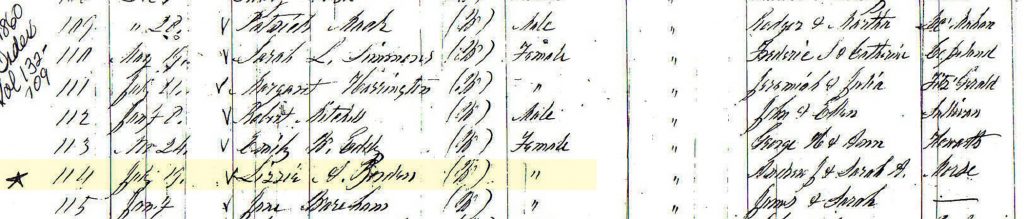 1860
Order
Vol 132-
109
109 " 28. √ Patrick Mack (W) Male " Rodger & Martha McMahon
110 May 19. √ Sarah L. Simmons (W) Female " Frederic S & Catherine Copeland
111 July 21. √ Margaret Harrington (W) " " Jeremiah & Julia Fitz Gerald
112 Jan 8. √ Robert (W) Male " John & Ellen Sullivan
113 Nov 24. √ Emily W. Eddy (W) Female " George H & Ann Howarth
★ 114 July 19. √ Lizzie A. Borden (W) " " Andrew J & Sarah A. Morse
115 Jan 4 √ Jane Bareham (W) " " James & Sarah —